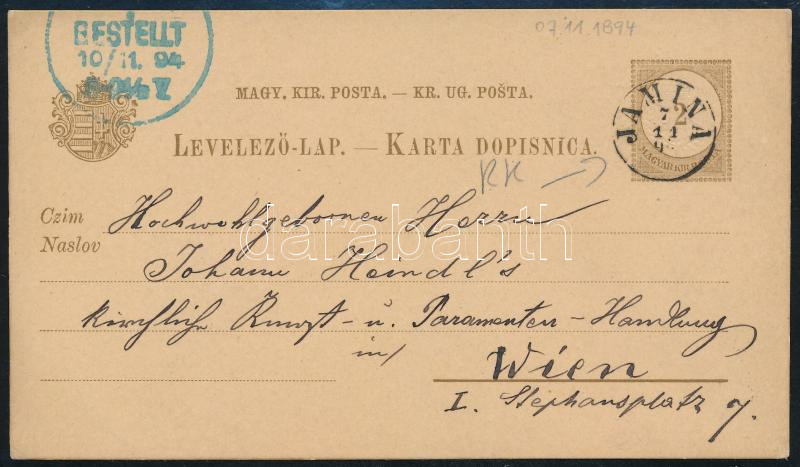 BESTELLT
10/11. 94
07.11.1894
MAGY. KIR. POSTA. — KR. UG. POŠTA.
LEVELEZŐ-LAP. — KARTA DOPISNICA.
2
MAGYAR KIR. POSTA
JAMINA
7
11
RK
Czim
Naslov
Hochwohlgebornen Herrn
Johann Heindl's
kirchliche Kunst- u. Paramenten-Handlung
in/
Wien
I. Stephansplatz 7.
darabanth